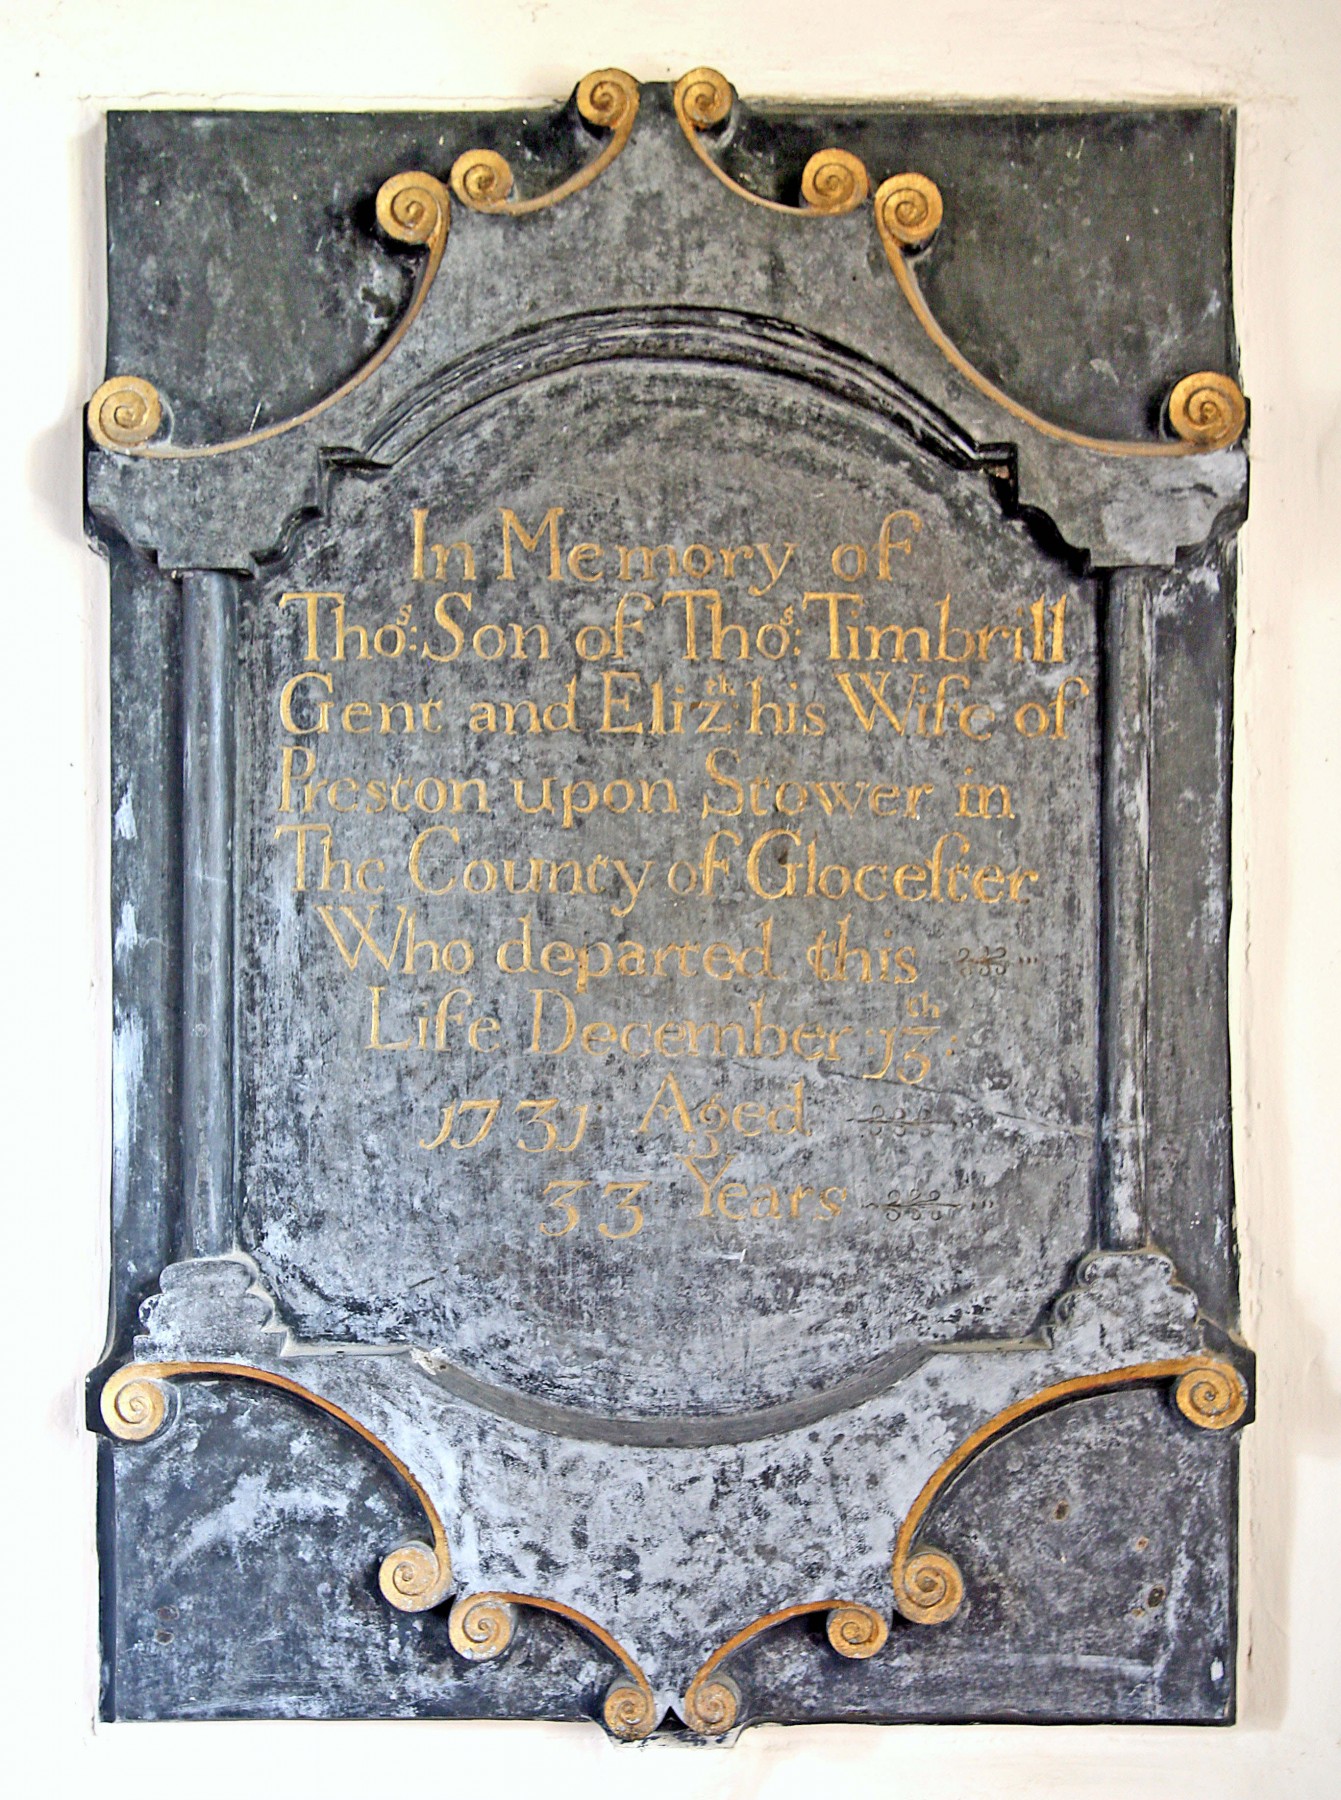 In Memory of
Thoˢ: Son of Thoˢ: Timbrill
Gent and Elizᵗʰ: his Wife of
Preston upon Stower in
The County of Gloceſter
Who departed this
Life December 13ᵗʰ:
1731 Aged
33 Years